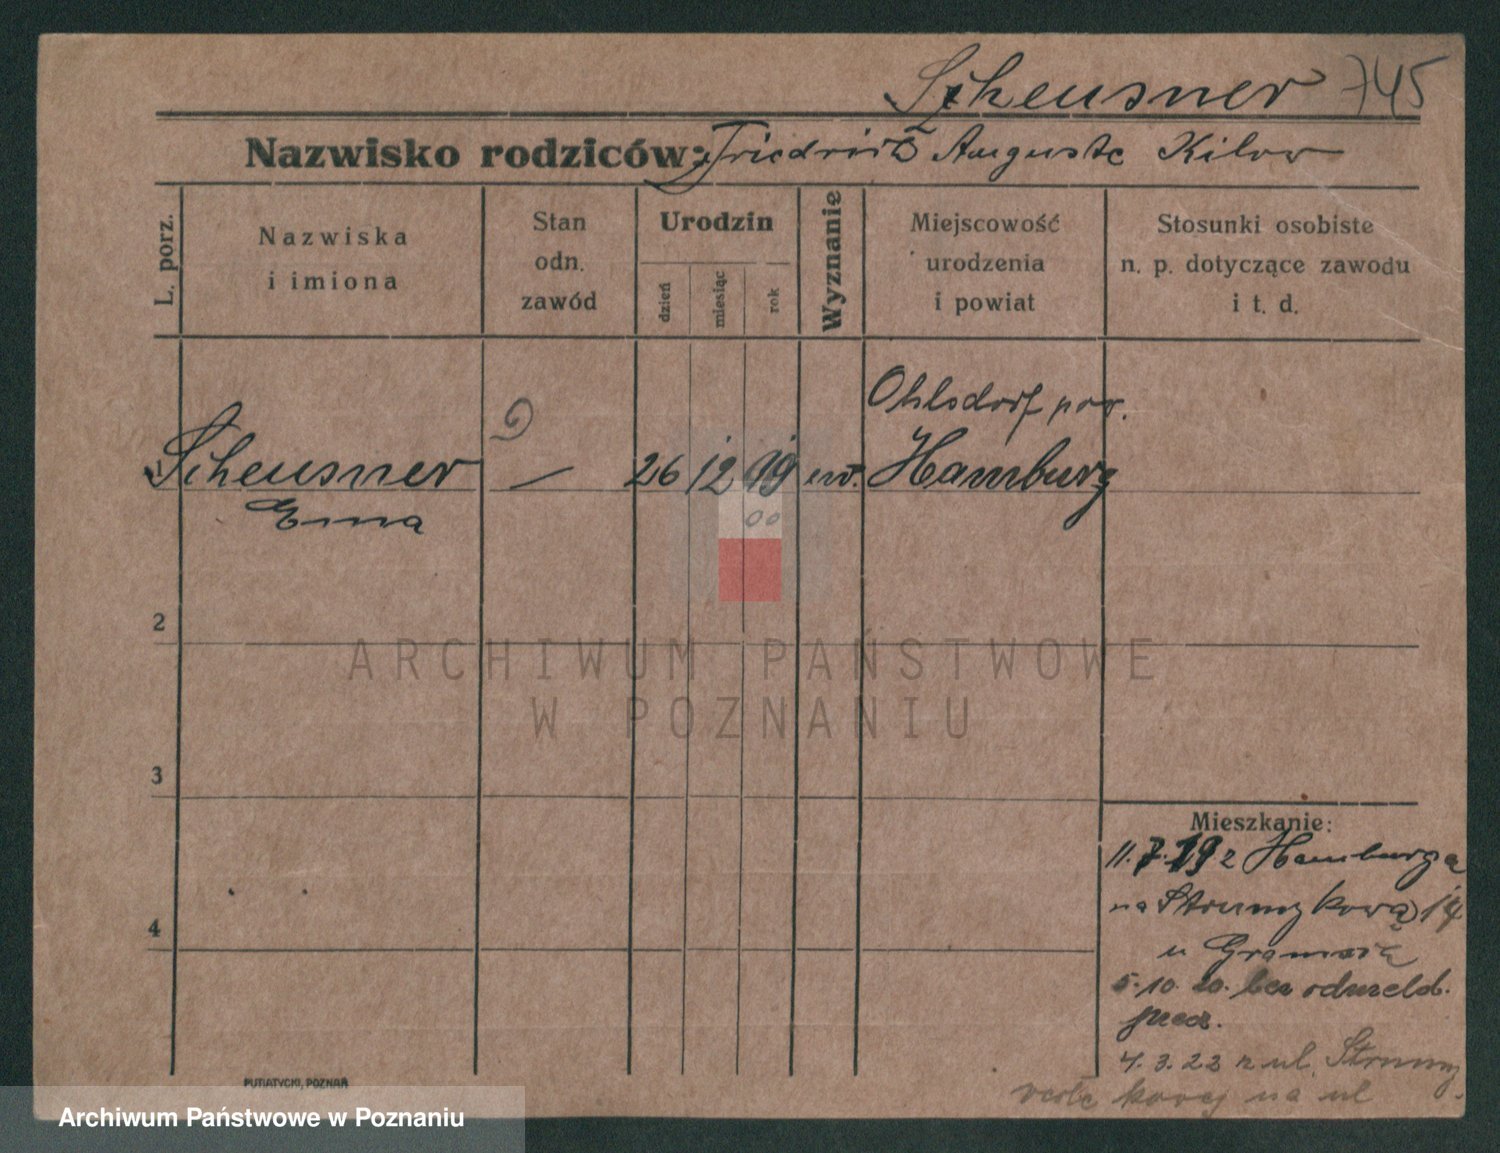 Scheusner 745
Nazwisko rodziców: Friedrich Auguste
L. porz.
Nazwiska
i imiona
Stan
odn.
zawód
Urodzin
dzień
miesiąc
rok
Wyznanie
Miejscowość
urodzenia
i powiat
Stosunki osobiste
n. p. dotyczące zawodu
i t. d.
Ohlsdorf pow.
Scheusner — 26 12 99 ew. Hamburg
Erna
00
2
ARCHIWUM PAŃSTWOWE
W POZNANIU
3
Mieszkanie:
11.7.19 z Hamburga
na Strumykową 14
u
4
5.10.20. bez odmeld.
4.3.22 z ul. Strumy
kowej na ul
PUTIATYCKI, POZNAŃ
Archiwum Państwowe w Poznaniu